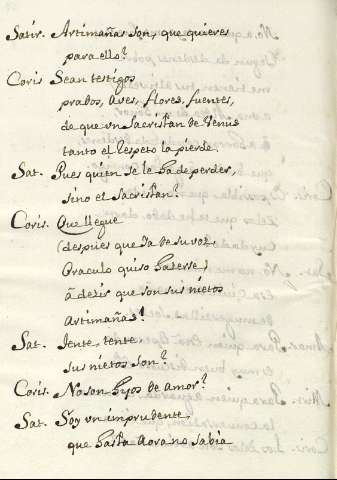 Satir. Artimañas son, que quieres
para ello?
Coris Sean testigos
prados, aves, flores, fuentes,
de que vn Sacristan de Venus
tanto el respeto la pierde.
Sat. Pues quien se le ha de perder,
sino el Sacristan?
Coris. Que llegue
(despues que ya de su voz
Oraculo quiso hazerse)
â dezir que son sus nietos
Artimañas!
Sat. Tente, tente,
sus nietos son?
Coris. No son hijos de amor?
Sat. Soy vn imprudente,
que hasta aora no sabia